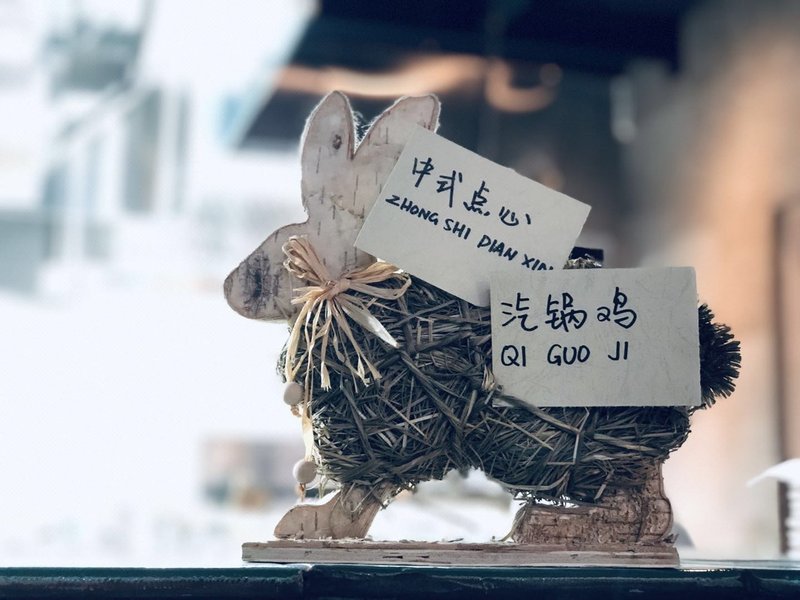 中式点心
ZHONG SHI DIAN XIN
汽锅鸡
QI GUO JI